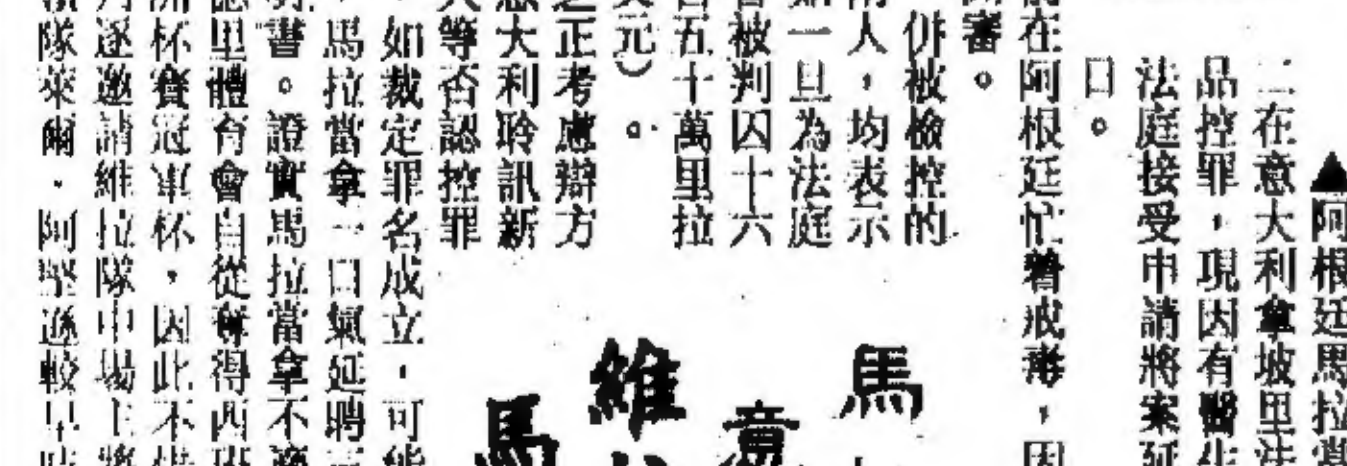 ▲阿根廷馬拉當
二在意大利拿坡里法
品控罪，現因有醫生
法庭接受申請將案延
口。
在阿根廷忙着戒毒，因
審。
併被檢控的
人，均表示
一旦為法庭
被判囚十六
五十萬里拉
元）。
正考慮辯方
大利聆訊新
等否認控罪
如裁定罪名成立，可能
馬拉當拿一口氣延聘
書。證實馬拉當拿不適
里體育會自從奪得西班
杯賽冠軍杯，因此不惜
逐邀請維拉隊中場主將
隊萊爾．阿堅遜較早時
馬
意
維
馬